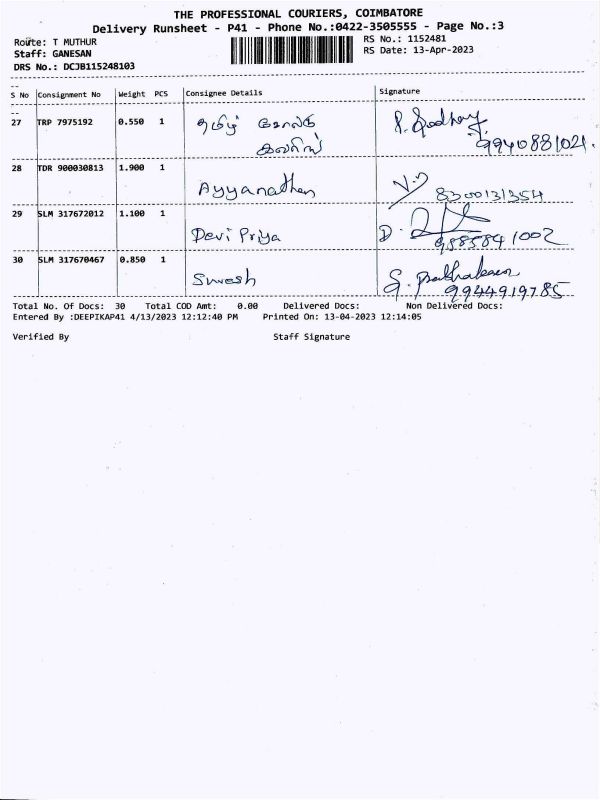 THE PROFESSIONAL COURIERS, COIMBATORE
Delivery Runsheet - P41 - Phone No.:0422-3505555 - Page No.:3
Route: T MUTHUR
RS No.: 1152481
Staff: GANESAN
RS Date: 13-Apr-2023
DRS No.: DCJB115248103
S No Consignment No Weight PCS Consignee Details Signature
27 TRP 7975192 0.550 1 தமிழ்
9940881021.
28 TDR 900030813 1.900 1 Ayyanathan
8300131354
29 SLM 317672012 1.100 1 Devi Priya D.
1002
30 SLM 317670467 0.850 1 Suresh
9944919785
Total No. Of Docs: 30 Total COD Amt: 0.00 Delivered Docs: Non Delivered Docs:
Entered By :DEEPIKAP41 4/13/2023 12:12:40 PM Printed On: 13-04-2023 12:14:05
Verified By Staff Signature